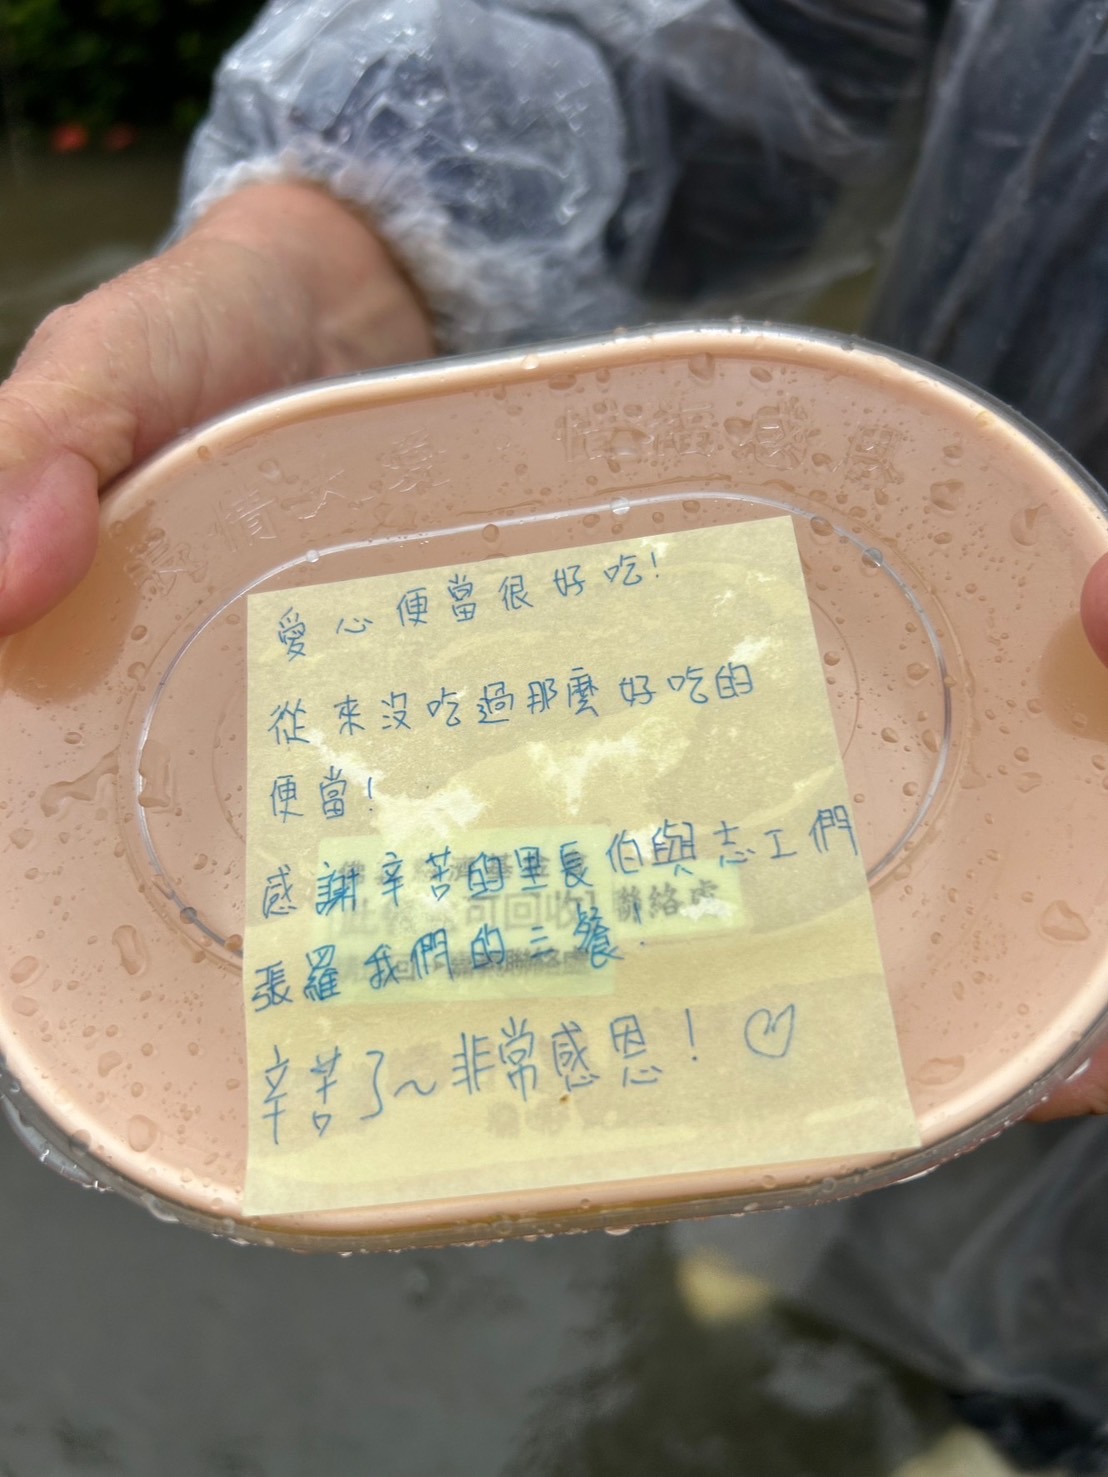 惜福感恩
愛心便當很好吃!
從來沒吃過那麼好吃的
便當!
感謝辛苦的里長伯與志工們
張羅我們的三餐!
辛苦了~非常感恩! ♡
可回收
聯絡處